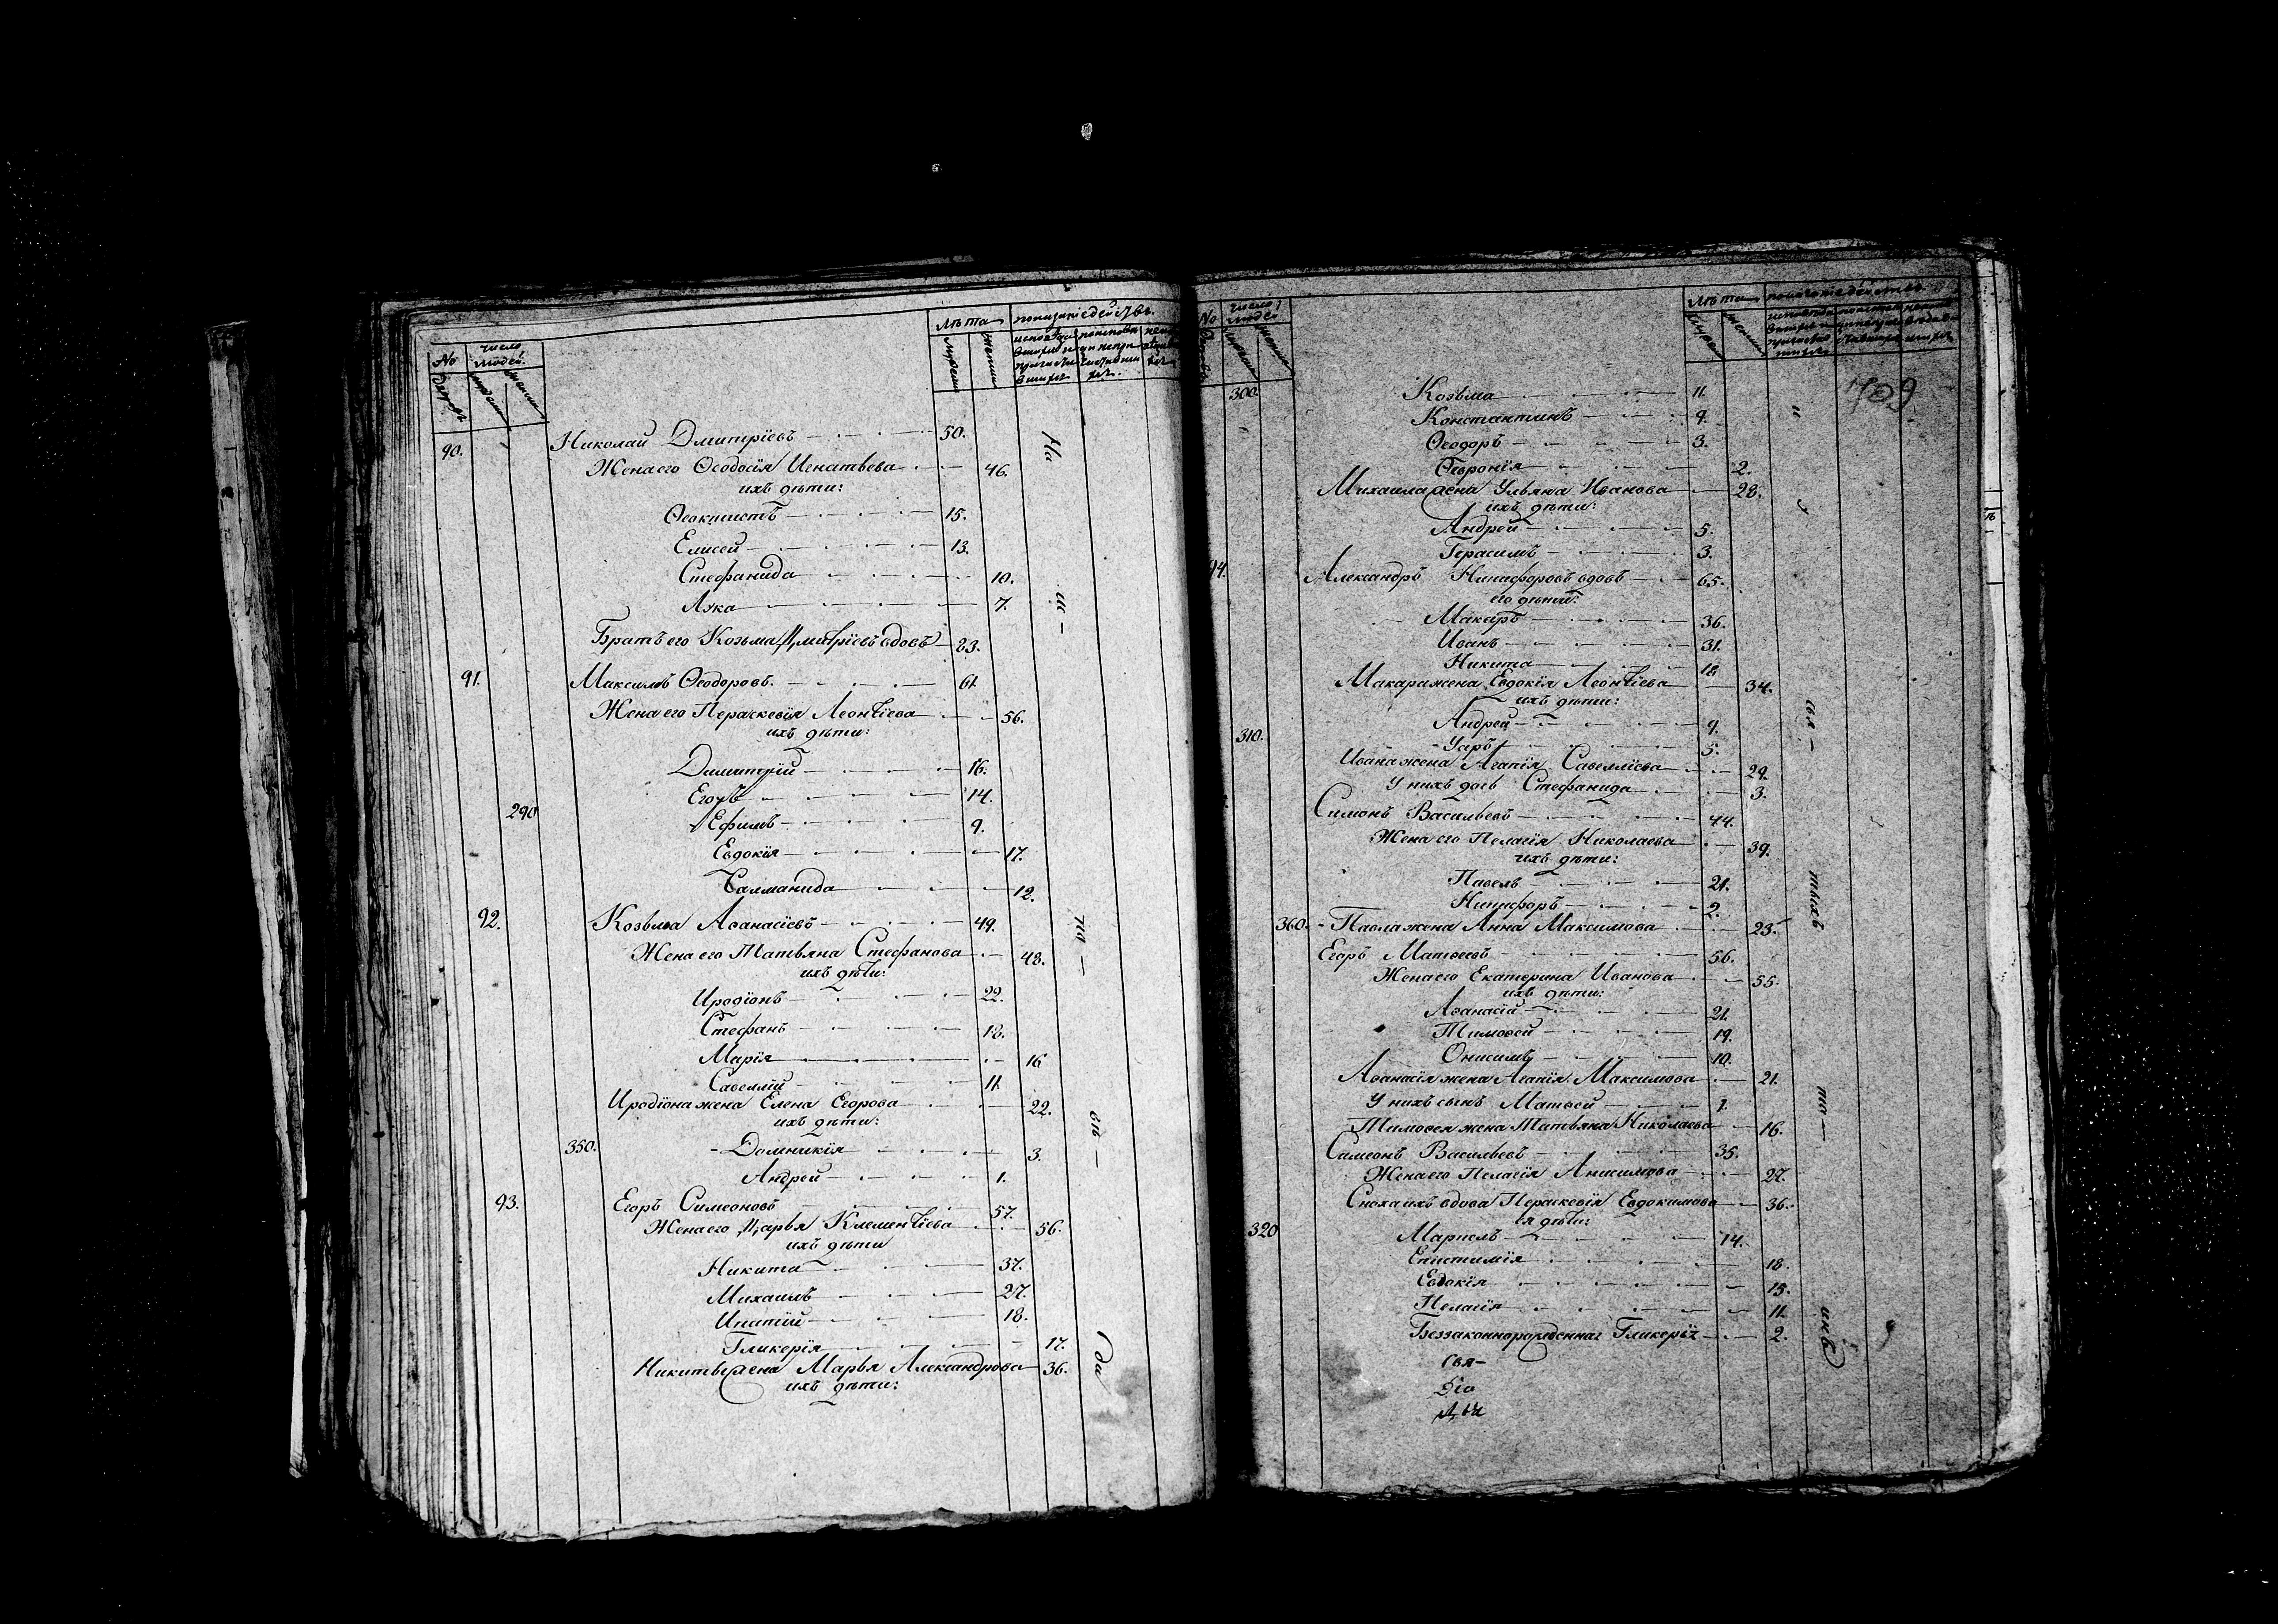 No
число людей
дворовъ
мужеска
женска
лѣта
мужеска
женска
показаніе дѣйствъ
90. Николай Дмитріевъ 50.
Жена его Ѳеодосія Игнатьева 46.
ихъ дѣти:
Ѳеоктистъ 15.
Елисей 13.
Стефанида 10.
Лука 7.
Братъ его Козьма Дмитріевъ вдовъ 83.
91. Максимъ Ѳеодоровъ 61.
Жена его Параскевія Леонтіева 56.
ихъ дѣти:
Димитрій 16.
Егоръ 14.
290 Ефимъ 9.
Евдокія 17.
Салманида 12.
92. Козьма Аѳанасіевъ 49.
Жена его Татьяна Стефанова 48.
ихъ дѣти:
Иродіонъ 22.
Стефанъ 18.
Марія 16
Савеллій 11.
Иродіона жена Елена Егорова 22.
ихъ дѣти:
350. Домникія 3.
Андрей 1.
93. Егоръ Симеоновъ 57.
Жена его Дарья Клементіева 56.
ихъ дѣти
Никита 37.
Михаилъ 27.
Ипатій 18.
Гликерія 17.
Никиты жена Марья Александрова 36.
ихъ дѣти:
No
число людей
лѣта
показаніе дѣйствъ
709
300. Козьма 11.
Константинъ 9.
Ѳеодоръ 3.
Ѳевронія 2.
Михаила жена Ульяна Иванова 28.
ихъ дѣти:
Андрей 5.
Герасимъ 3.
94. Александръ Никифоровъ вдовъ 65.
его дѣти:
Макаръ 36.
Иванъ 31.
Никита 18
Макара жена Евдокія Леонтіева 34.
ихъ дѣти:
Андрей 9.
310. Уаръ 5.
Ивана жена Агапія Савелліева 29.
У нихъ дочь Стефанида 3.
Симонъ Васильевъ 44.
Жена его Пелагія Николаева 39.
ихъ дѣти:
Павелъ 21.
Никифоръ 2.
360. Павла жена Анна Максимова 23.
Егоръ Матѳеевъ 56.
Жена его Екатерина Иванова 55.
ихъ дѣти:
Аѳанасій 21.
Тимоѳей 19.
Онисимъ 10.
Аѳанасія жена Агапія Максимова 21.
У нихъ сынъ Матѳей 1.
Тимоѳея жена Татьяна Николаева 16.
Симеонъ Васильевъ 35.
Жена его Пелагія Анисимова 27.
Сноха ихъ вдова Параскевія Евдокимова 36.
ея дѣти:
320 Маркелъ 14.
Епистимія 18.
Евдокія 15.
Пелагія 11.
Беззаконнорожденная Гликерія 2.